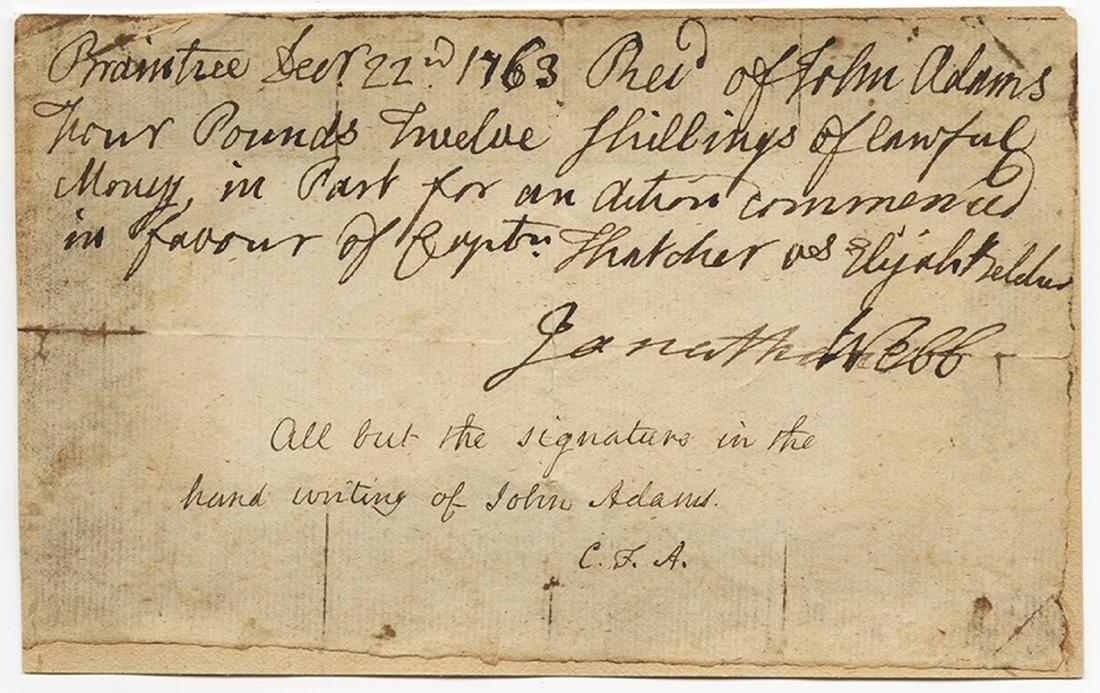 Braintree Decr. 22nd. 1763 Recd of John Adams
Four Pounds Twelve Shillings of lawful
Money, in Part for an Action commenced
in favour of Captn. Thatcher vs Elijah Belcher
Jonathan Webb
All but the signature in the
hand writing of John Adams.
C. F. A.